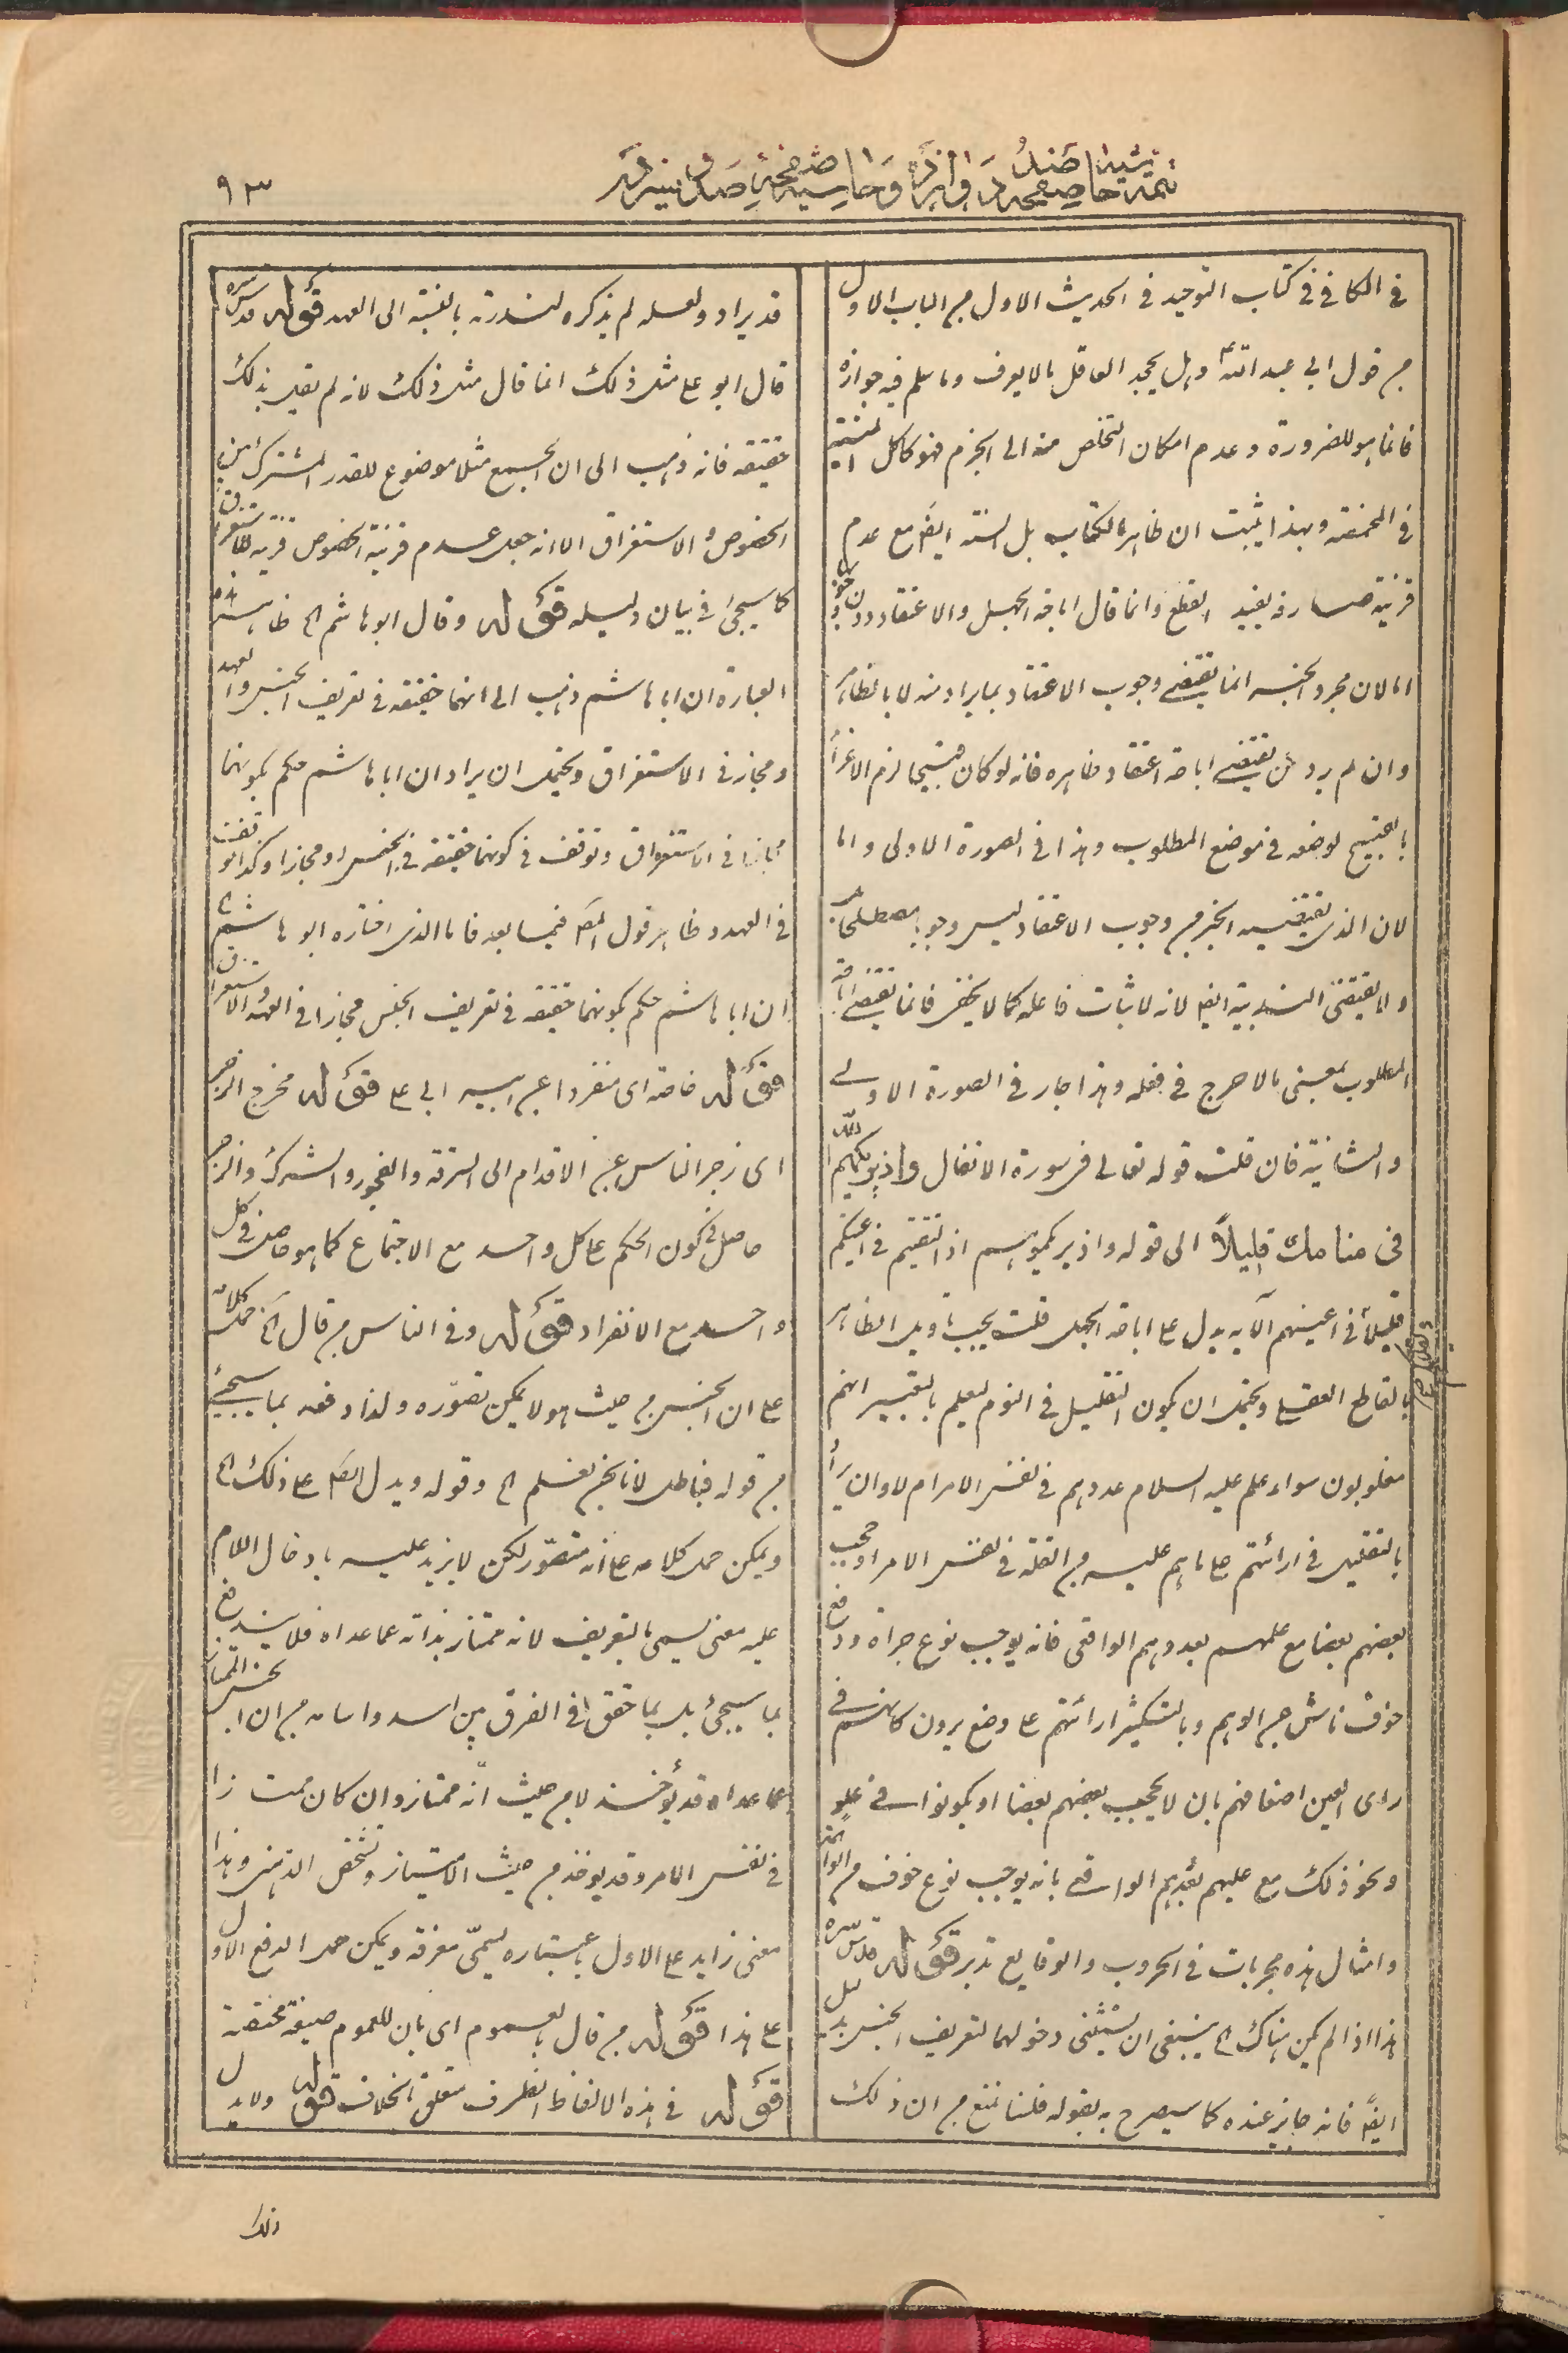 ٩٣
في الكافي في كتاب التوحيد في الحديث الاول من الباب الاول
من قول ابي عبد الله ع وهل يجحد العاقل ما لا يعرف وما سلم فيه جوازه
فانما هو للضرورة وعدم امكان التخلص منه الى الجزم فهو كاكل الميتة
في المخمصة وبهذا يثبت ان ظاهر الكتاب بل السنة ايضا مع عدم
قرينة صارفة يفيد القطع وانما قال اباحة الجهل والاعتقاد دون
اما لان مجرد الخبر انما يقتضي وجوب الاعتقاد بما يراد منه لا بالظاهر
وان لم يرد بل يقتضي اباحة اعتقاد ظاهره فانه لو كان قبيحا لزم الاغراء
بالقبيح لوضعه في موضع المطلوب وهذا في الصورة الاولى واما
لان الذي يقتضيه الخبر من وجوب الاعتقاد ليس وجوبا مصطلحا
ولا يقتضي الندبية ايضا لانه لا يثاب فاعله كما لا يخفى فانما يقتضي اباحة
المطلوب بمعنى ما لا حرج في فعله وهذا جار في الصورة الاولى
والثانية فان قلت قوله تعالى في سورة الانفال واذ يريكهم الله
في منامك قليلاً الى قوله واذ يريكموهم اذ التقيتم في اعينكم
قليلا في اعينهم الآية يدل على اباحة الجهل قلت يجب تأويل الظاهر
بالقاطع العقلي ويحتمل ان يكون التقليل في النوم ليعلم بالتعبير انهم
مغلوبون سواء علم عليه السلام عددهم في نفس الامر ام لا وان يراد
بالتقليل في ارائتهم على ما هم عليه من القلة في نفس الامر او حجب
بعضهم بعضا مع علمهم بعددهم الواقعي فانه يوجب نوع جرأة ودفع
خوف ناش عن الوهم وبالتكثير ارائتهم على وضع يرون كانهم في
رأى العين اضعافهم بان لا يحجب بعضهم بعضا او يكونوا في علو
ونحو ذلك مع علمهم بعددهم الواقعي بانه يوجب نوع خوف من
وامثال هذه مجربات في الحروب والوقايع تدبر قوله قدس سره
هذا اذا لم يكن هناك الخ ينبغي ان يستثنى دخولهما لتعريف الجنس بل
ايضا فانه جايز عنده كما سيصرح به بقوله قلنا نمنع من ان ذلك
قد يراد ولعله لم يذكره لندرته بالنسبة الى العهد قوله قدس سره
قال ابو علي مثل ذلك انما قال مثل ذلك لانه لم يقل بذلك
حقيقة فانه ذهب الى ان الجمع مثلا موضوع للقدر المشترك بين
الخصوص والاستغراق الا انه جعل عدم قرينة الخصوص قرينة للاستغراق
كما سيجئ في بيان دليله قوله وقال ابو هاشم الخ ظاهر هذه
العبارة ان ابا هاشم ذهب الى انهما حقيقة في تعريف الجنس والعهد
ومجاز في الاستغراق ويحتمل ان يراد ان ابا هاشم حكم بكونهما
مجازا في الاستغراق وتوقف في كونهما حقيقة في الجنس او مجازا وكذا توقف
في العهد وظاهر قول المصنف فيما بعد فاما الذي اختاره ابو هاشم الخ
ان ابا هاشم حكم بكونهما حقيقة في تعريف الجنس مجازا في العهد والاستغراق
قوله خاصة اى منفردا عن ابيه ابي علي قوله مخرج الزجر
اى زجر الناس عن الاقدام الى السرقة والفجور والشرك والزجر
حاصل في كون الحكم على كل واحد مع الاجتماع كما هو حاصل في كل
واحد مع الانفراد قوله وفي الناس من قال الخ حمل كلامه
على ان الجنس من حيث هو لا يمكن تصوّره ولذا دفعه بما سيجئ
من قوله فباطل لانا نحن نعلم الخ وقوله ويدل ايضا على ذلك الخ
ويمكن حمل كلامه على انه متصوّر لكن لا يزيد عليه بادخال اللام
عليه معنى يسمى بالتعريف لانه ممتاز بذاته عما عداه فلا يندفع
بما سيجئ بل بما حقق في الفرق بين اسد واسامة من ان الجنس الممتاز
عما عداه قد يؤخذ لا من حيث انّه ممتاز وان كان ممتازا
في نفس الامر وقد يؤخذ من حيث الامتياز وتشخص الذهن وهذا
معنى زايد على الاول باعتباره يسمّى معرفة ويمكن حمل الدفع الاول
على هذا قوله من قال بالعموم اى بان للعموم صيغة مختصة
قوله في هذه الالفاظ الظرف متعلق بالخلاف قوله ولا يدل